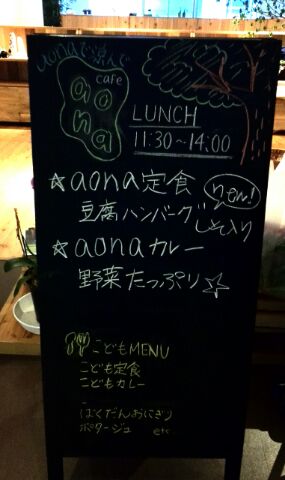 aonaで楽んで
cafe
aona
LUNCH
11:30~14:00
☆aona定食
new!
豆腐ハンバーグ しそ入り
☆aonaカレー
野菜たっぷり☆
こどもMENU
こども定食
こどもカレー
ばくだんおにぎり
ポタージュ etc...